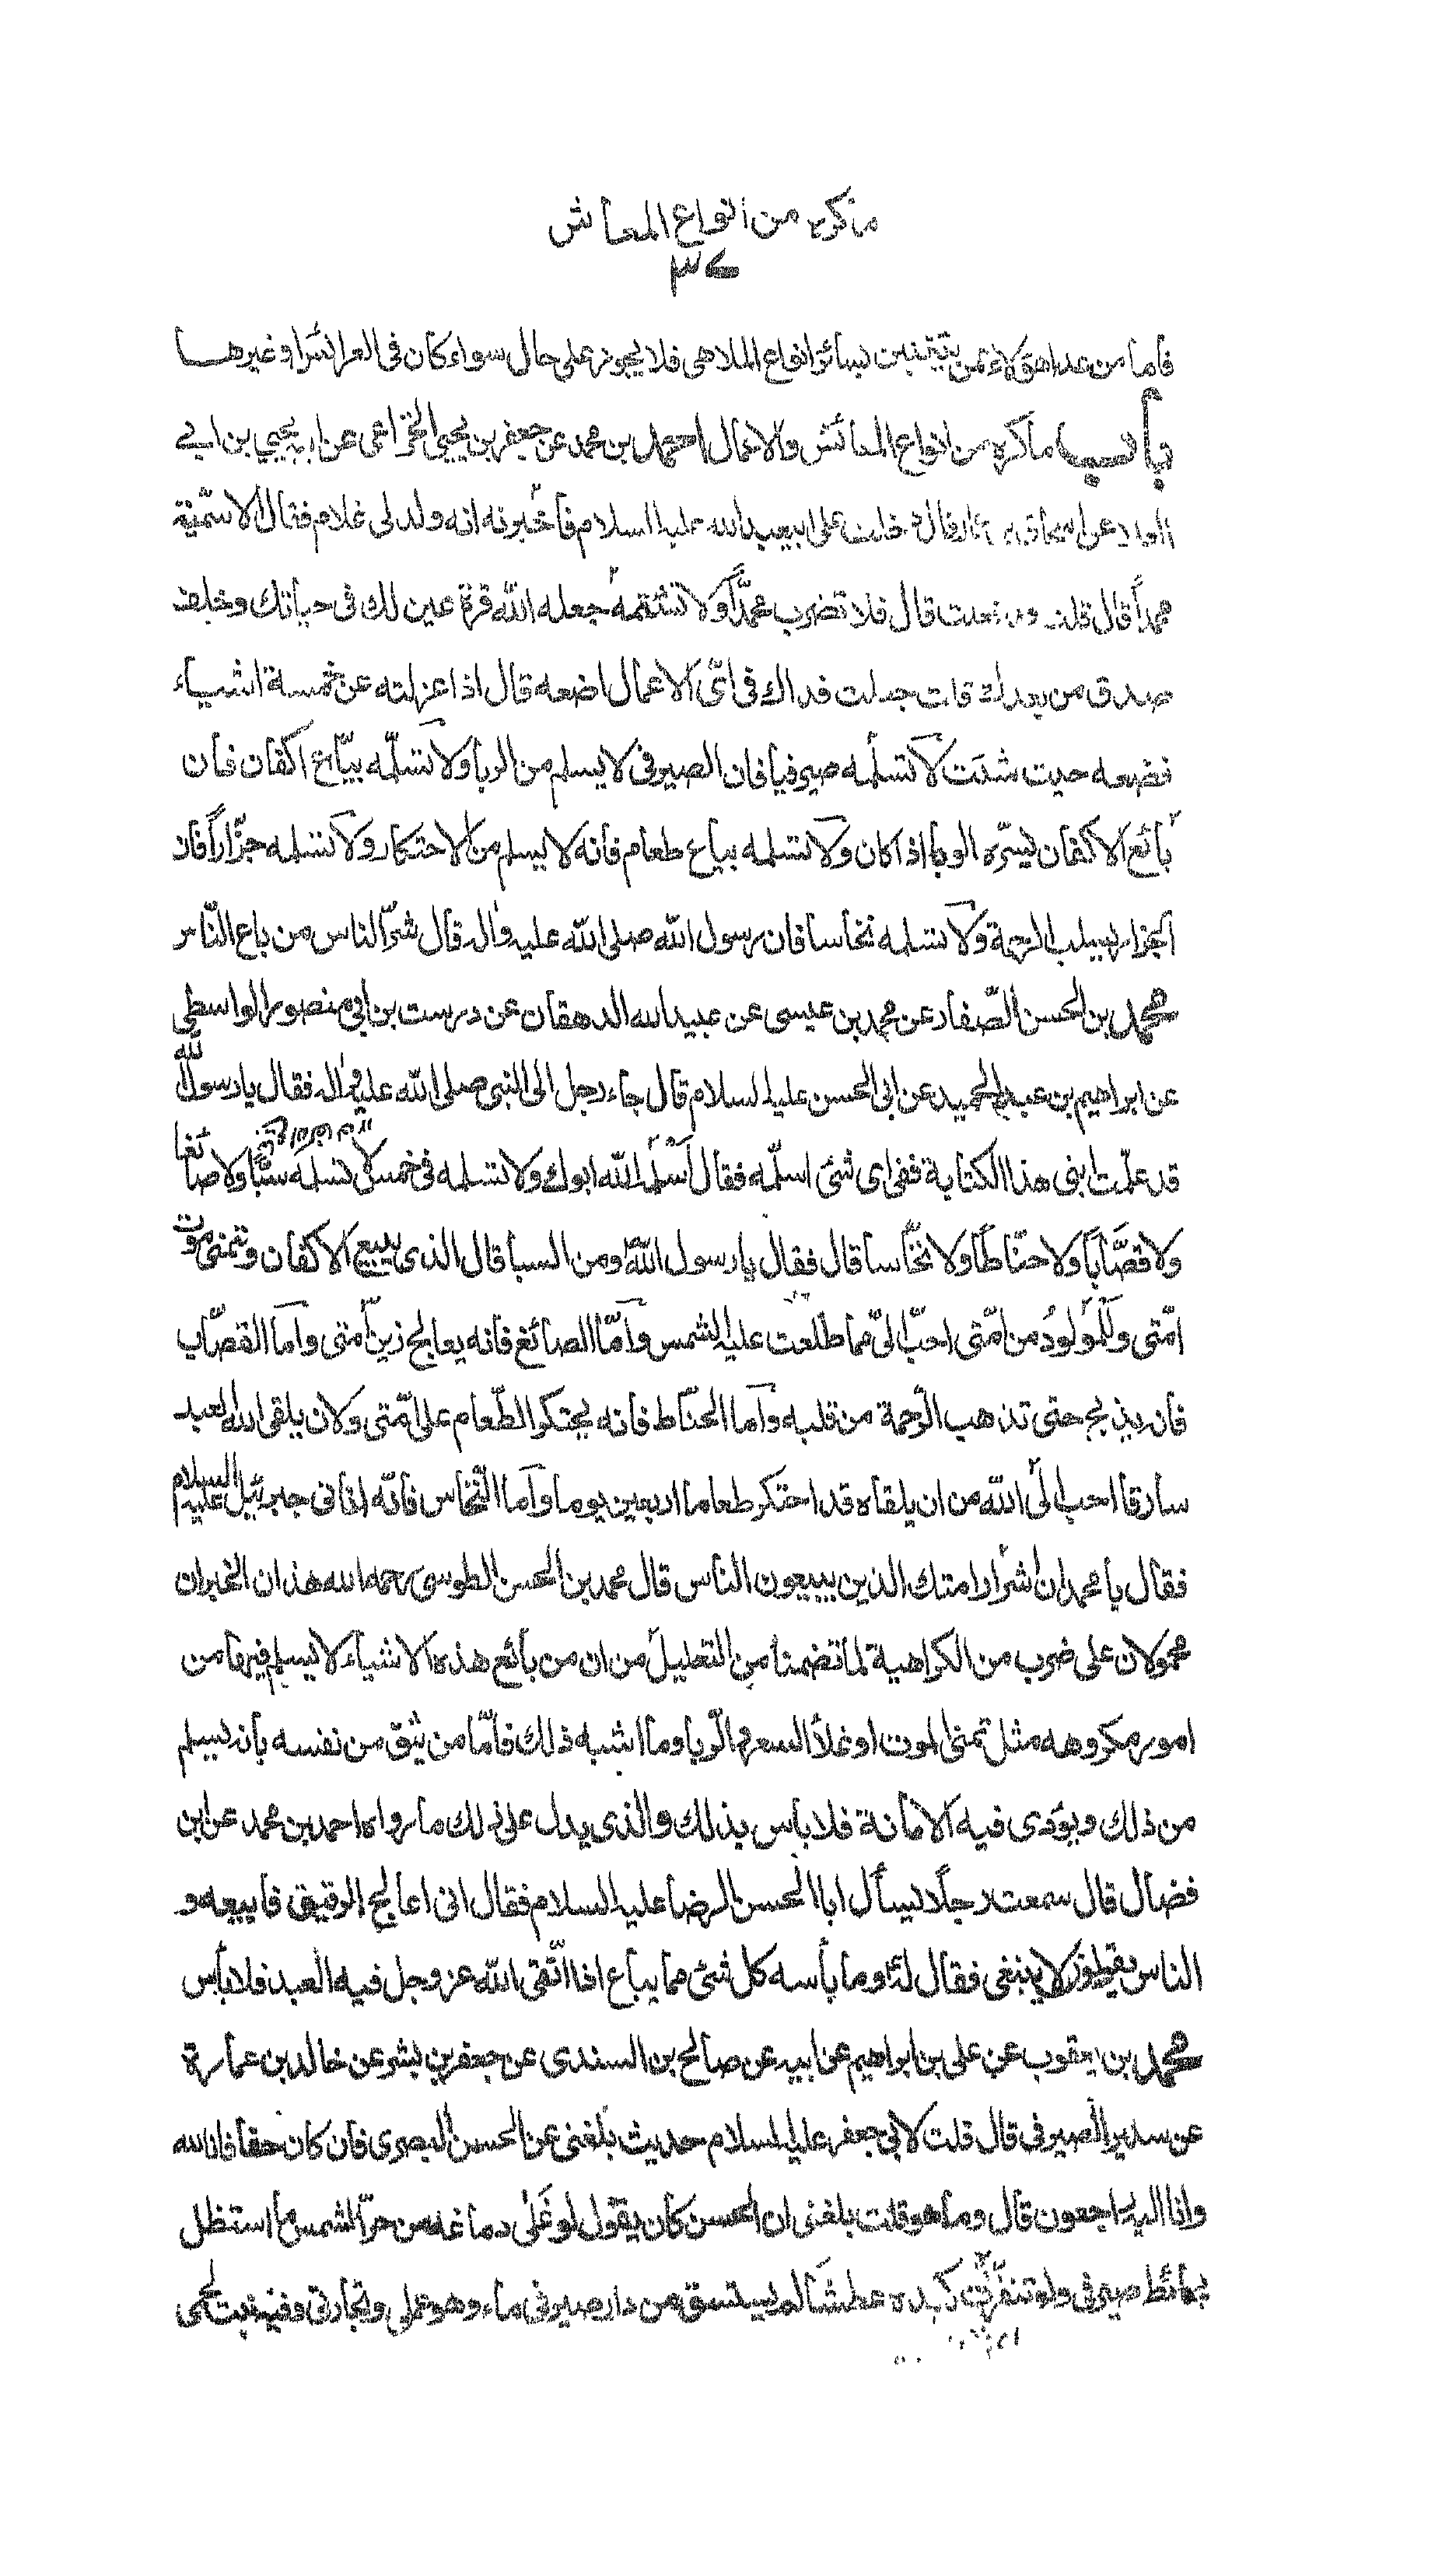 ما كره من انواع المعاش
٣٤
فاما من عدا هؤلاء ممن يتغنين بسائر انواع الملاهى فلا يجوز على حال سواء كان فى العرائس او غيرها
باب ما كره من انواع المعائش والاعمال احمد بن محمد عن جعفر بن يحيى الخزاعى عن ابيه يحيى بن ابى
العلاء عن اسحاق بن عمار قال دخلت على ابيعبدالله عليه السلام فأخبرته انه ولد لى غلام فقال الا سمّيته
محمداً قال قلت قد فعلت قال فلا تضرب محمّداً ولا تشتمه جعله الله قرة عين لك فى حياتك وخلف
صدق من بعدك قلت جعلت فداك فى اىّ الاعمال اضعه قال اذا عزلته عن خمسة اشياء
فضعه حيث شئت لا تسلمه صيرفيا فان الصيرفى لا يسلم من الربا ولا تسلّمه بيّاع اكفان فان
بائع الاكفان يسرّه الوبا اذا كان ولا تسلمه بياع طعام فانه لا يسلم من الاحتكار ولا تسلمه جزّاراً فان
الجزار يسلب الرحمة ولا تسلمه نخاسا فان رسول الله صلى الله عليه واله قال شرّ الناس من باع النّاس
محمد بن الحسن الصّفار عن محمد بن عيسى عن عبيدالله الدهقان عن درست بن ابى منصور الواسطى
عن ابراهيم بن عبد الحميد عن ابى الحسن عليه السلام قال جاء رجل الى النبى صلى الله عليه واله فقال يا رسول الله
قد علّمت ابنى هذا الكتابة ففى اى شئ اسلّمه فقال اسلمه لله ابوك ولا تسلمه فى خمس لا تسلمه سبّا ولا صائغا
ولا قصّاباً ولا حنّاطاً ولا نخّاسا قال فقال يا رسول الله ومن السبا قال الذى يبيع الاكفان ويتمنى موت
امّتى وللمولود من امّتى احبّ الىّ مما طلعت عليه الشمس وامّا الصائغ فانه يعالج زين امتى واما القصّاب
فانه يذبح حتى تذهب الرّحمة من قلبه واما الحنّاط فانه يحتكر الطّعام على امّتى ولان يلقى الله العبد
سارقا احب الىّ الله من ان يلقاه قد احتكر طعاما اربعين يوما واما النّخاس فانّه اتانى جبرئيل عليه السلام
فقال يا محمد ان شرار امتك الذين يبيعون الناس قال محمد بن الحسن الطوسى رحمه الله هذان الخبران
محمولان على ضرب من الكراهية لما تضمنا من التعليل من ان من بائع هذه الاشياء لا يسلم فيها من
امور مكروهه مثل تمنى الموت او غلاء السعر والرّبا وما اشبه ذلك فامّا من يثق من نفسه بأنه يسلم
من ذلك ويؤدى فيه الامانة فلا باس بذلك والذى يدل على ذلك ما رواه احمد بن محمد عن ابن
فضال قال سمعت رجلا يسأل ابا الحسن الرضا عليه السلام فقال انى اعالج الرقيق فابيعه و
الناس يقولون لا ينبغى فقال له وما بأسه كل شئ مما يباع اذا اتّقى الله عز وجل فيه العبد فلا بأس
محمد بن يعقوب عن على بن ابراهيم عن ابيه عن صالح بن السندى عن جعفر بن بشر عن خالد بن عمارة
عن سدير الصيرفى قال قلت لابى جعفر عليه السلام حديث بلغنى عن الحسن البصرى فان كان حقا فانا لله
وانا اليه راجعون قال وما هو قلت بلغنى ان الحسن كان يقول لو غلى دماغه من حرّ الشمس ما استظل
بحائط صيرفى ولو تفرثت كبده عطشا لم يستسق من دار صيرفى ماء وهو عملى وتجارتى وفيه نبت لحمى